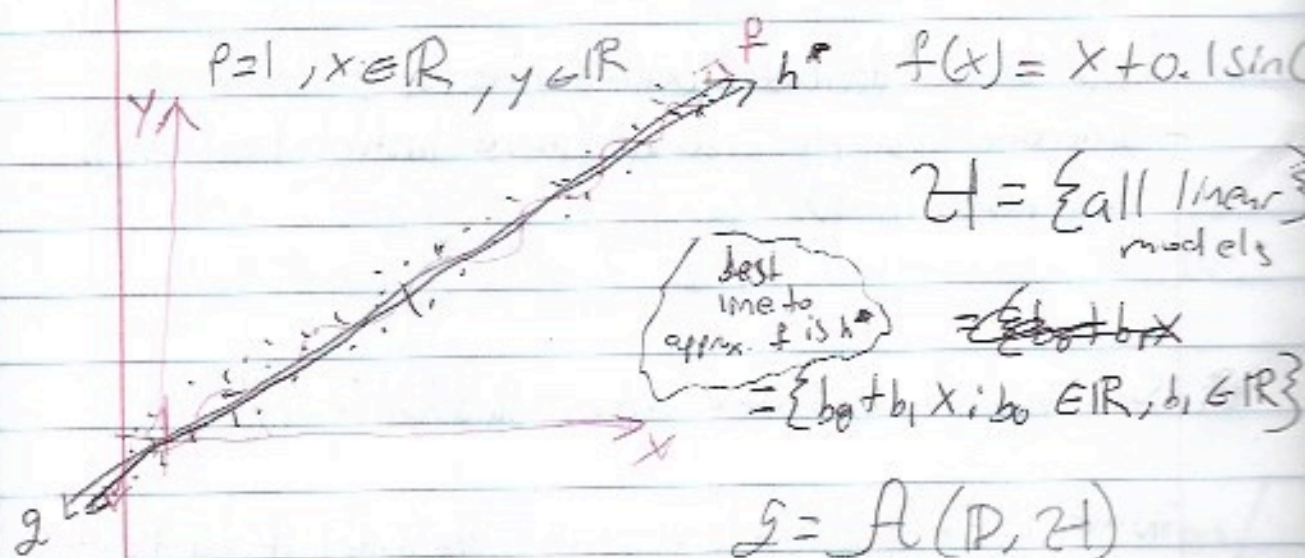 p=1, x∈ℝ, y∈ℝ
f
h*
f(x) = x+0.1sin(
y
ℋ = {all linear models}
best line to approx. f is h*
={b₀+b₁x
={b₀+b₁x : b₀ ∈ℝ, b₁ ∈ℝ}
x
g
g = 𝒜(𝔻, ℋ)